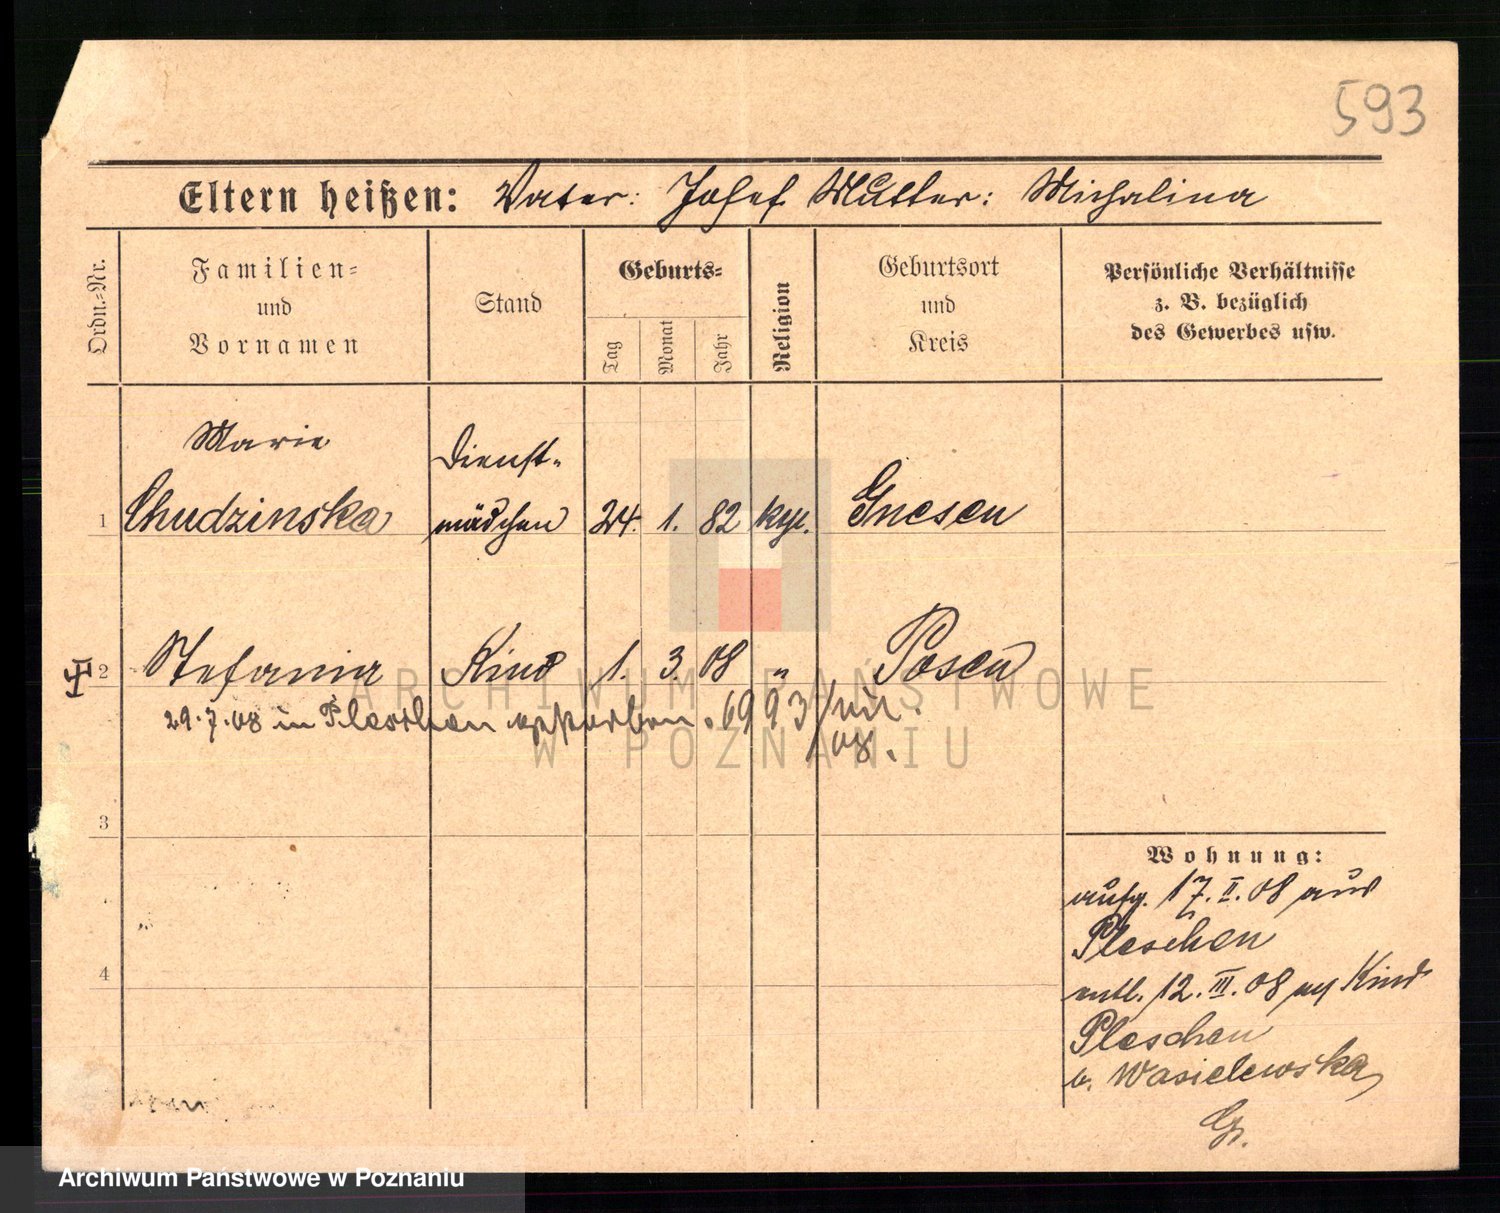 593
Eltern heißen: Vater: Josef Mutter: Michalina
Ordn.=Nr.
Familien=
und
Vornamen
Stand
Geburts=
Tag
Monat
Jahr
Religion
Geburtsort
und
Kreis
Persönliche Verhältnisse
z. B. bezüglich
des Gewerbes usw.
Marie
Dienst-
1 Chudzinska mädchen 24. 1. 82 kth. Gnesen
2 Stefania Kind 1. 3. 08 " Posen
29.7.08 in Pleschen . 6993/
08.
3
4
Wohnung:
aufg. 17. II. 08 aus
Pleschen
entl. 12. III. 08 Kind
Pleschen
b. Wasielewska
ARCHIWUM PAŃSTWOWE
W POZNANIU
Archiwum Państwowe w Poznaniu